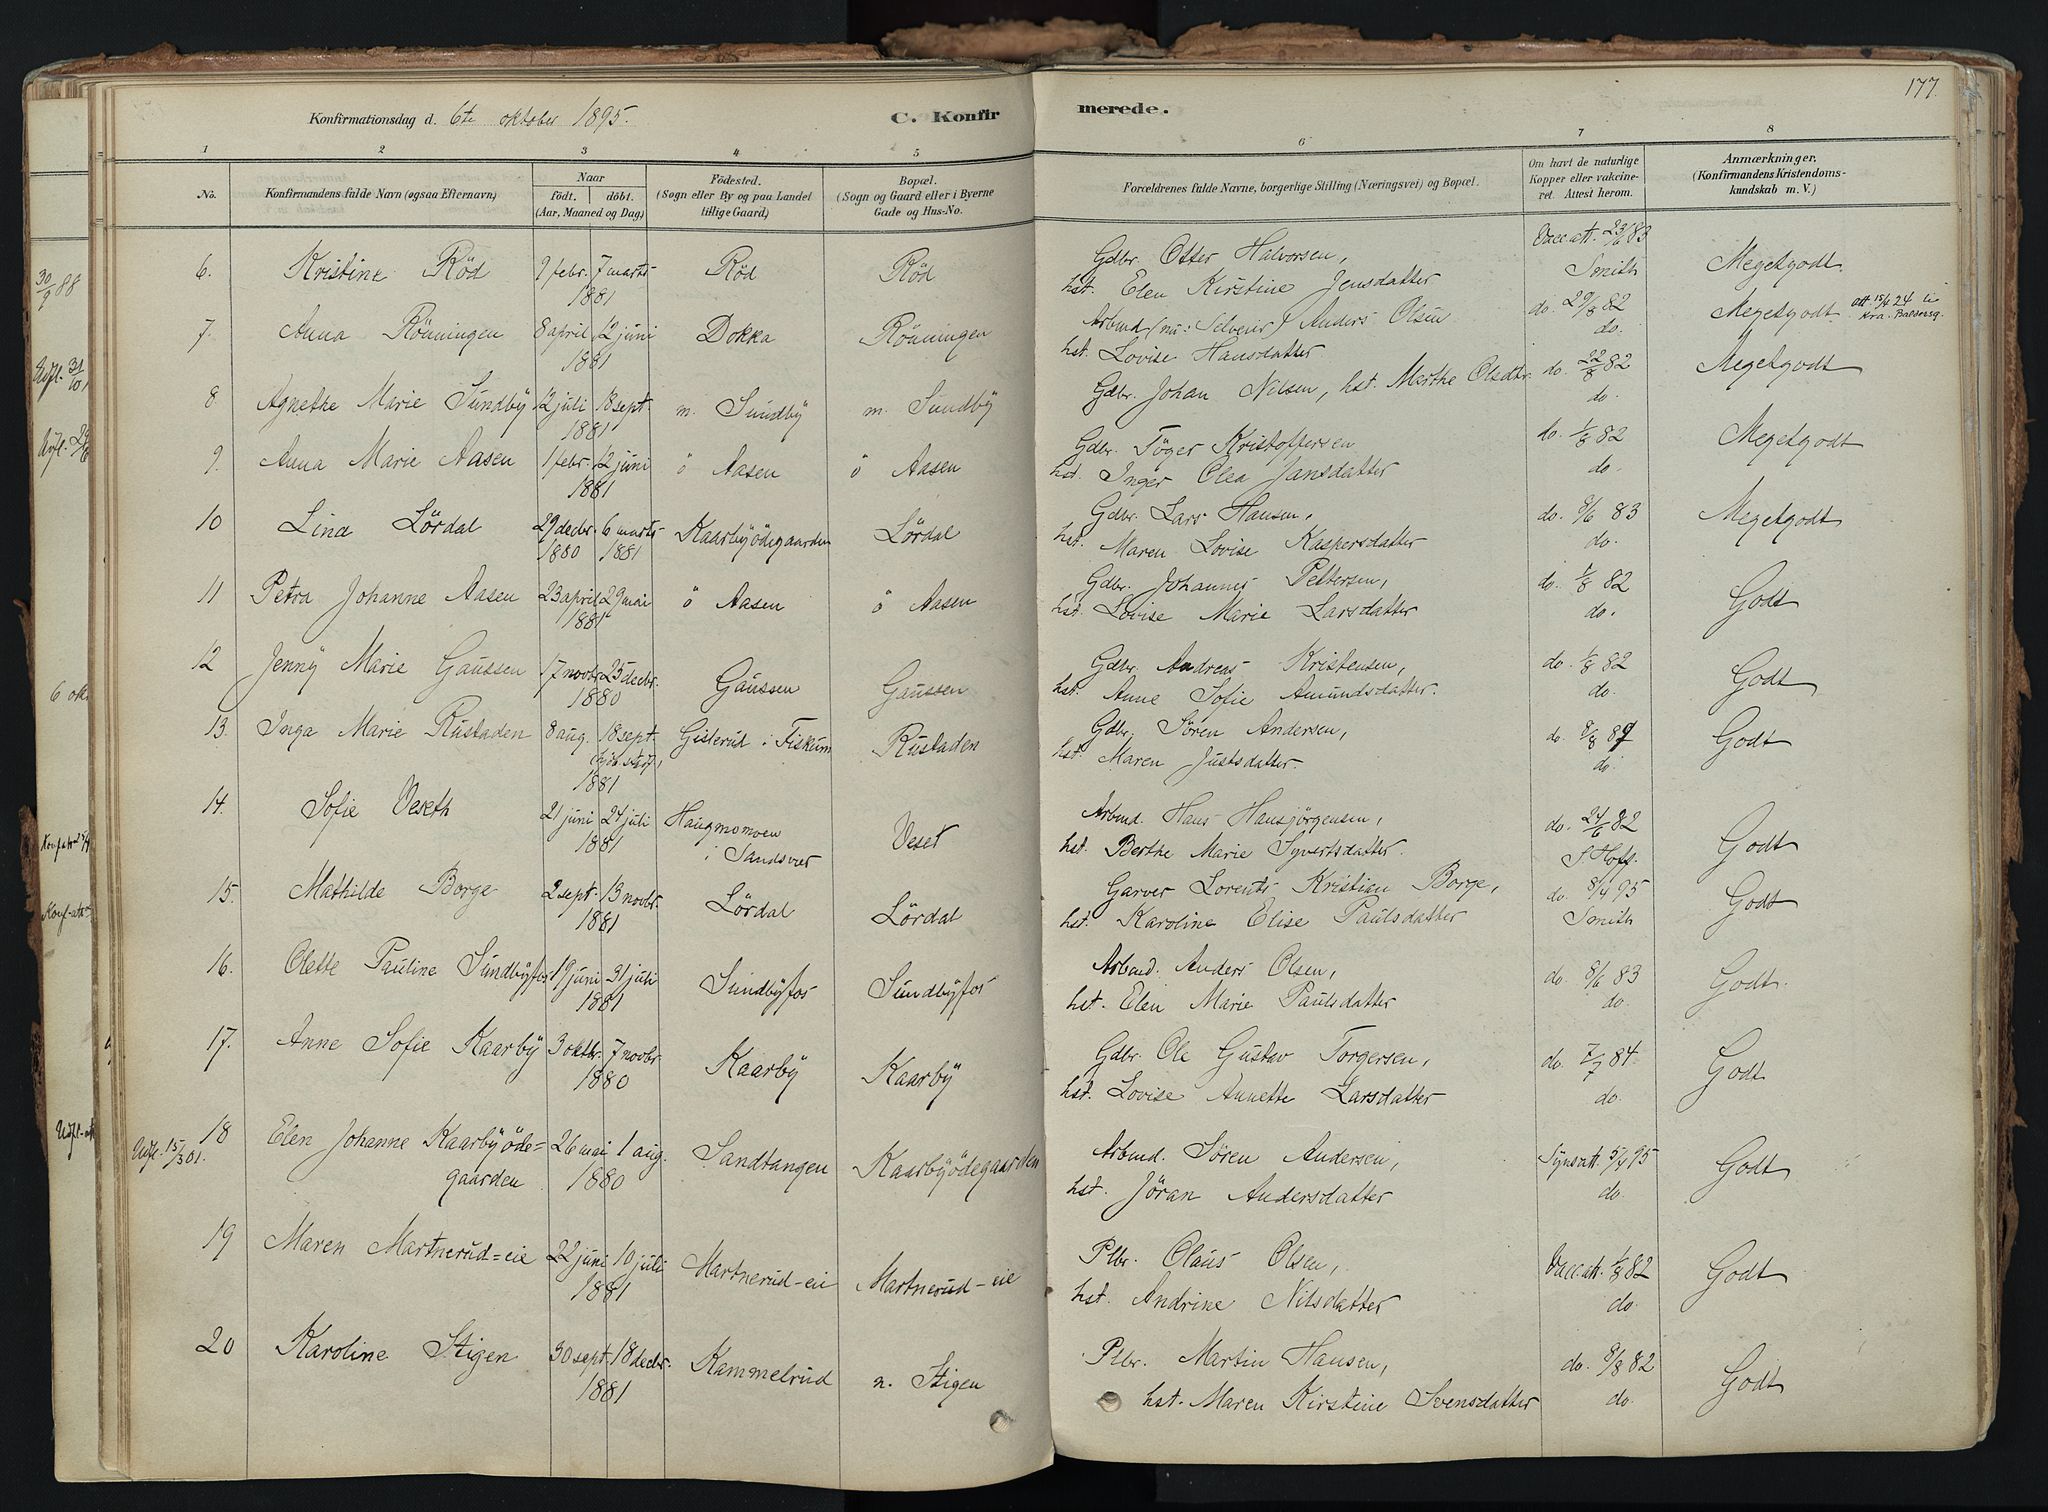 177.
Konfirmationsdag d. 6te oktober 1895.
C. Konfir
merede.
1 2 3 4 5 6 7 8
No. Konfirmandens fulde Navn (ogsaa Efternavn) Naar födt. döbt. (Aar, Maaned og Dag) Födested. (Sogn eller By og paa Landet tillige Gaard) Bopæl. (Sogn og Gaard eller i Byerne Gade og Hus-No.) Forældrenes fulde Navne, borgerlige Stilling (Næringsvei) og Bopæl. Om havt de naturlige Kopper eller vakcineret. Attest herom. Anmærkninger. (Konfirmandens Kristendomskundskab m. V.)
6. Kristine Röd 9 febr. 7 marts 1881 Röd Röd Gdbr. Otter Halvorsen, Vacc. att. 23/6 83 Megetgodt.
hst. Elen Kirstine Jensdatter Smith
7. Anna Rönningen 8 april 12 juni 1881 Dokka Rönningen Arbmd (nu: Selveier) Anders Olsen do. 29/8 82 Megetgodt. Att 15/4 24 til Kra.
hst. Lovise Hansdatter. do.
8 Agnethe Marie Sundby 12 juli 18 sept. 1881 m. Sundby m. Sundby Gdbr. Johan Nilsen, hst. Marthe Olsdtr. do. 22/8 82 Megetgodt
do.
9. Anna Marie Aasen 1 febr. 12 juni 1881 ö Aasen ö Aasen Gdbr. Töger Kristoffersen do. 1/8 82 Megetgodt
hst. Inger Olea Jansdatter do.
10 Lina Lördal 29 decbr. 1880 6 marts 1881 Kaarbyödegaarden Lördal Gdbr. Lars Hansen, do. 9/6 83 Megetgodt
hst. Maren Lovise Kaspersdatter do.
11 Petra Johanne Aasen 23 april 29 mai 1881 ö Aasen ö Aasen Gdbr. Johannes Pettersen, do. 1/8 82 Godt
hst. Lovise Marie Larsdatter do.
12 Jenny Marie Gaussen 17 novbr. 25 decbr. 1880 Gaussen Gaussen Gdbr. Andreas Kristensen, do. 1/8 82 Godt
hst. Anne Sofie Amundsdatter. do.
13. Inga Marie Rustaden 8 aug. 18 sept. 1881 Gislerud i Fiskum Rustaden Gdbr. Sören Andersen, do. 8/8 89 Godt
hst. Maren Justsdatter. do.
14. Sofie Veseth 21 juni 24 juli 1881 Haugmomoen i Sandsvær Veset Arbmd. Hans Hansjörgensen, do. 24/6 82 Godt
hst. Berthe Marie Syvertsdatter. S. Hoff.
15. Mathilde Borge 2 sept. 13 novbr. 1881 Lördal Lördal Garver Lorents Kristian Borge, do. 8/4 95 Godt
hst. Karoline Elise Paulsdatter Smith
16. Olette Pauline Sundbyfos 19 juni 31 juli 1881 Sundbyfos Sundbyfos Arbmd. Anders Olsen, do. 8/6 83 Godt.
hst. Elen Marie Paulsdatter do.
17. Anne Sofie Kaarby 3 oktbr. 7 novbr. 1880 Kaarby Kaarby Gdbr. Ole Gustav Torgersen, do. 7/7 84. Godt
hst. Lovise Annette Larsdatter do.
Udfl. 15/3 01. 18 Elen Johanne Kaarbyöde=gaarden 26 mai 1 aug. 1880 Sandtangen Kaarbyödegaarden Arbmd. Sören Andersen, Synsatt. 5/4 95 Godt
hst. Jöran Andersdatter do.
19 Maren Martnerud=eie 22 juni 10 juli 1881 Martnerud-eie Martnerud-eie Plbr. Olaus Olsen, Vacc. att. 1/8 82 Godt
hst. Andrine Nilsdatter do.
20 Karoline Stigen 30 sept. 18 decbr. 1881 Kammelrud n. Stigen Plbr. Martin Hansen, do. 8/8 82 Godt
hst. Maren Kirstine Svensdatter do.
30/9 88
Udfl. 31/10
6 okt